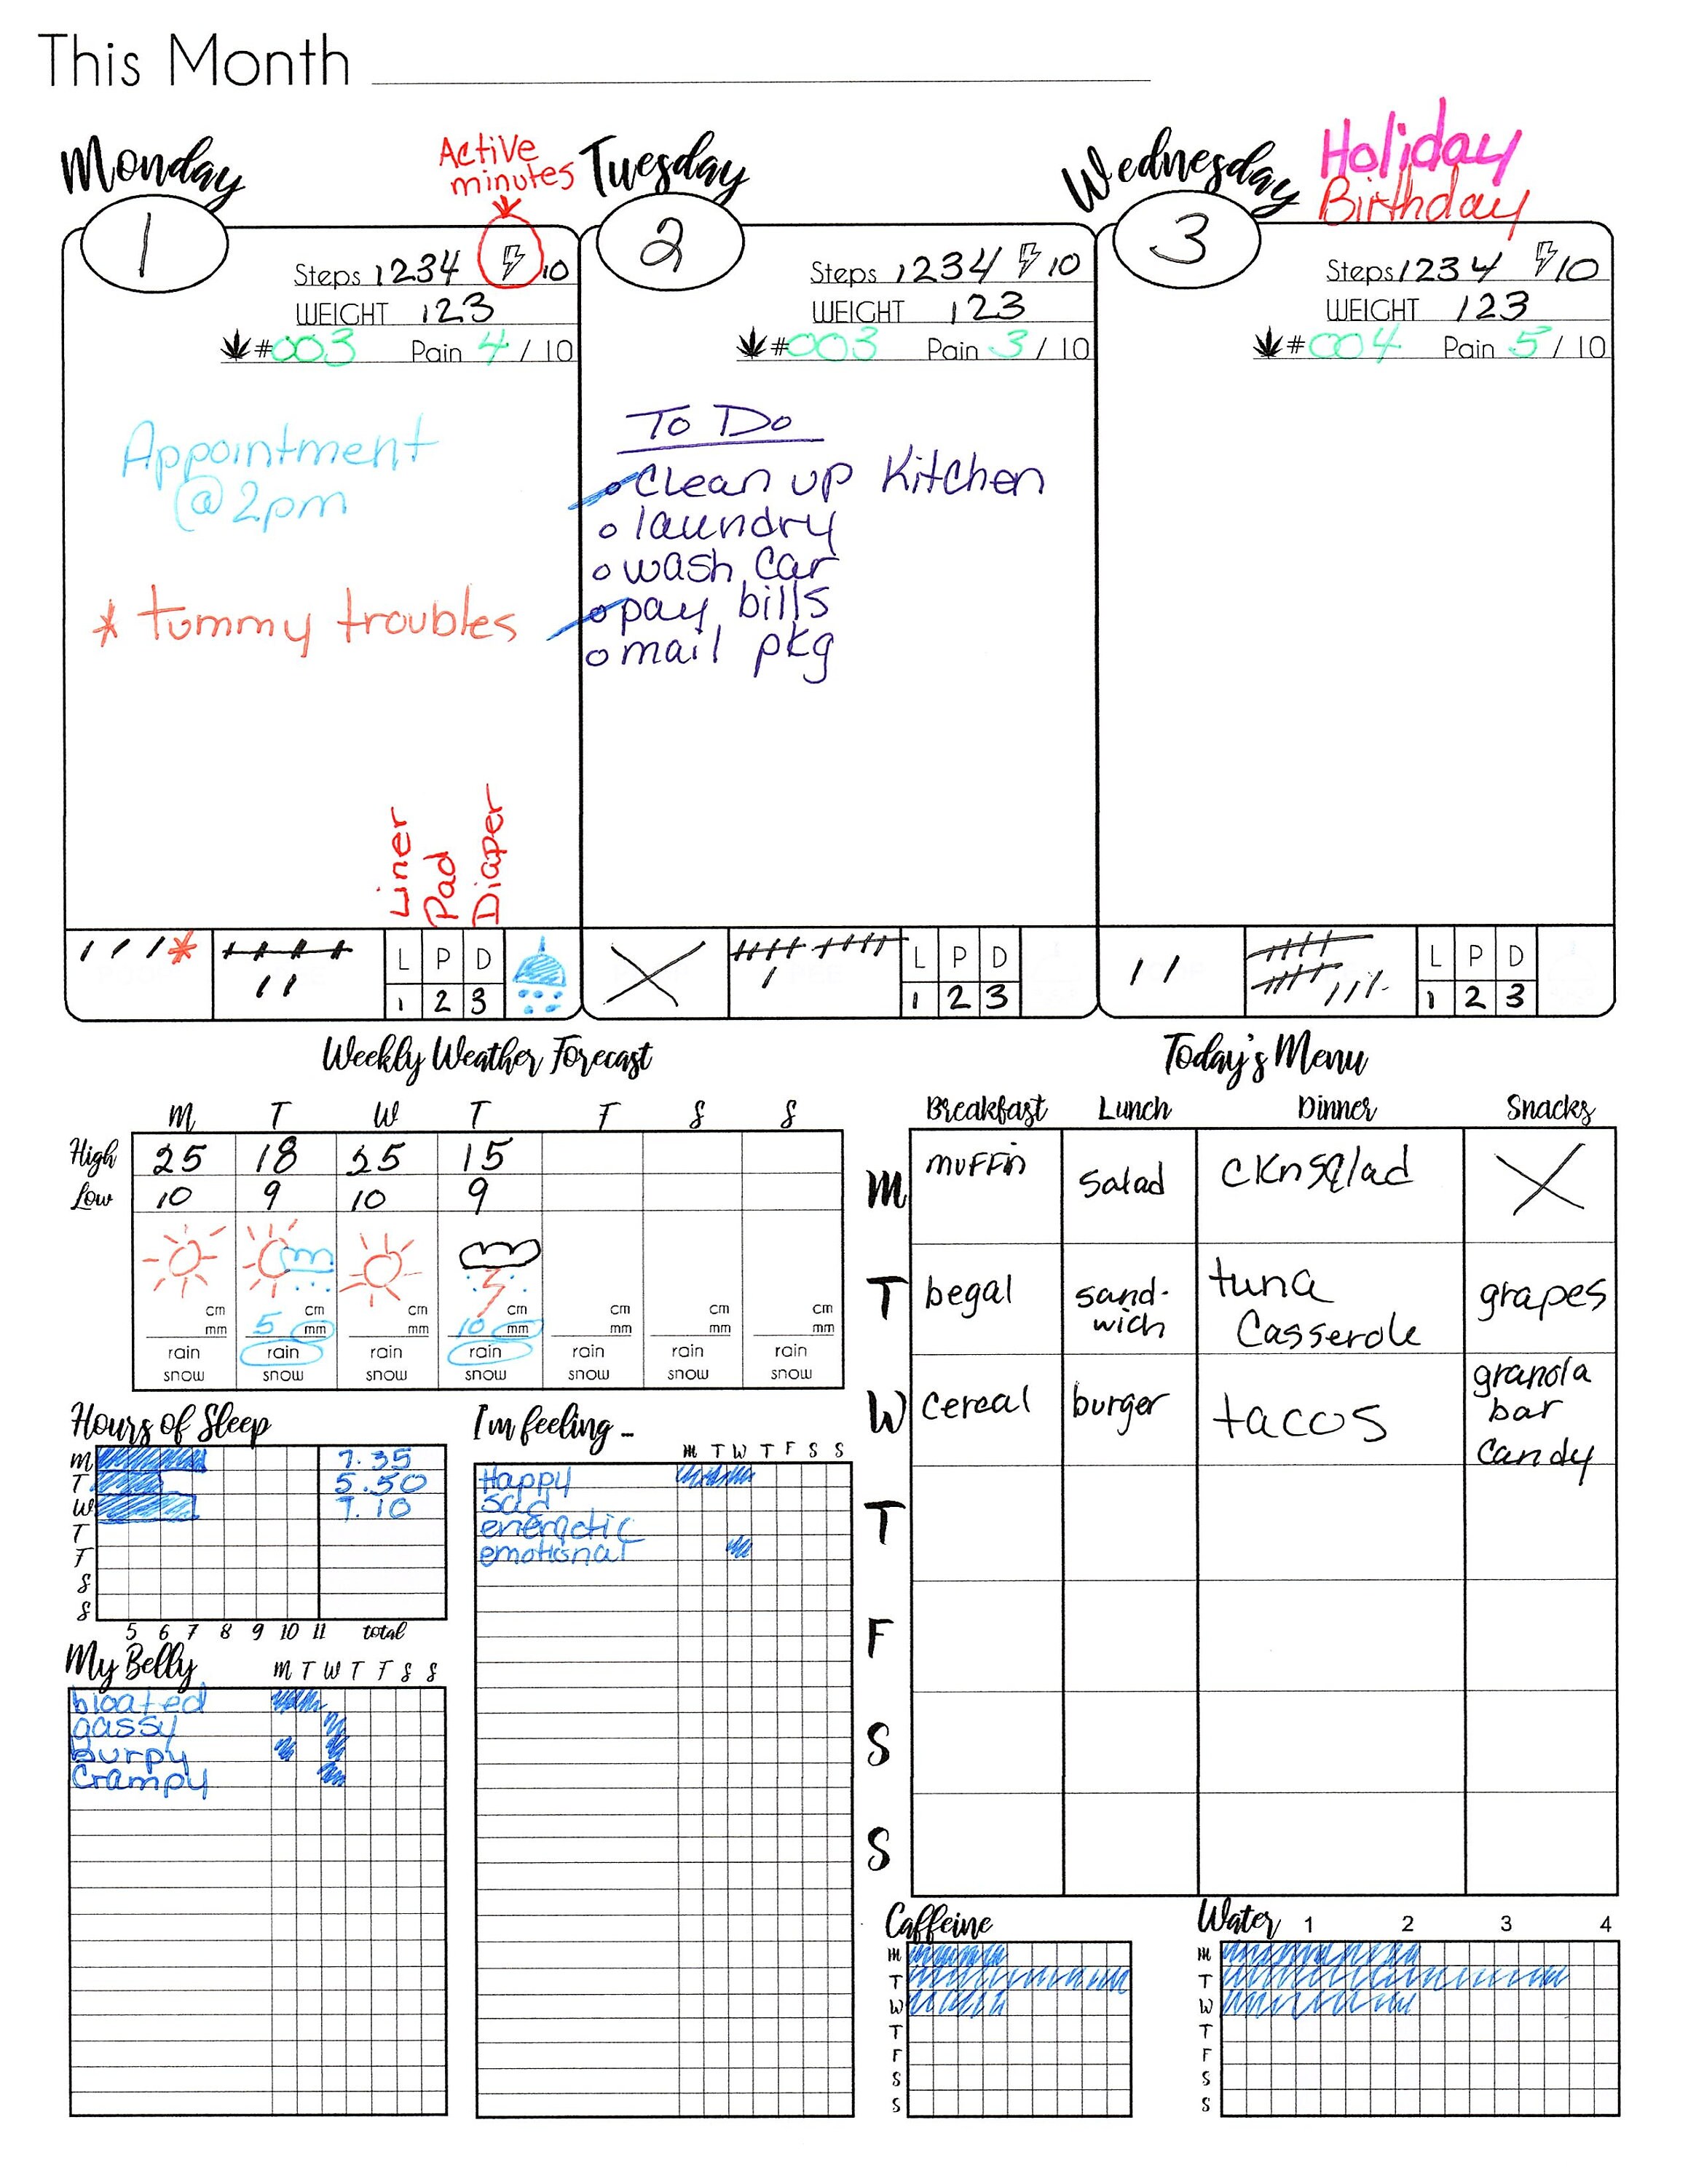 This Month
Monday
Active
minutes
Tuesday
Wednesday
Holiday
Birthday
1
Steps 1234 10
WEIGHT 123
#003 Pain 4 / 10
2
Steps 1234 10
WEIGHT 123
#003 Pain 3 / 10
3
Steps 1234 10
WEIGHT 123
#004 Pain 5 / 10
Appointment
@ 2pm
* tummy troubles
To Do
clean up Kitchen
laundry
wash car
pay bills
mail pkg
Liner
Pad
Diaper
L P D
1 2 3
L P D
1 2 3
L P D
1 2 3
Weekly Weather Forecast
M T W T F S S
High 25 18 25 15
Low 10 9 10 9
cm cm cm cm cm cm cm
mm 5 mm mm 10 mm mm mm mm
rain rain rain rain rain rain rain
snow snow snow snow snow snow snow
Today's Menu
Breakfast Lunch Dinner Snacks
M muffin salad ckn salad
T begal sand-
wich tuna
Casserole grapes
W Cereal burger tacos granola
bar
candy
T
F
S
S
Hours of Sleep
M 7.35
T 5.50
W 7.10
T
F
S
S
5 6 7 8 9 10 11 total
I'm feeling -
M T W T F S S
Happy
sad
energetic
emotional
My Belly
M T W T F S S
bloated
gassy
burpy
Crampy
Caffeine
M
T
W
T
F
S
S
Water 1 2 3 4
M
T
W
T
F
S
S